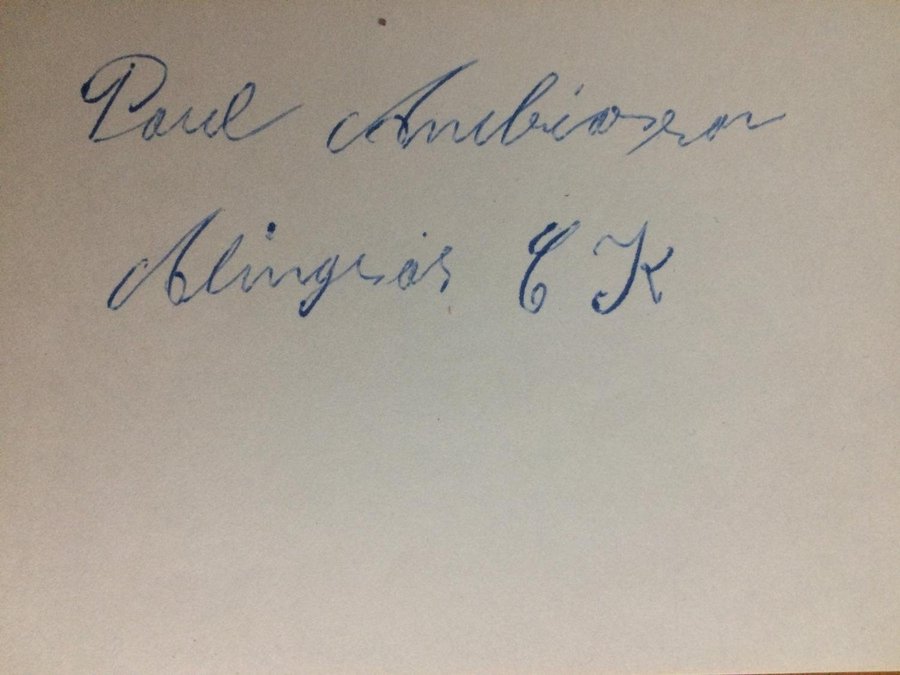 Paul Ambrosson
Alingsås C K